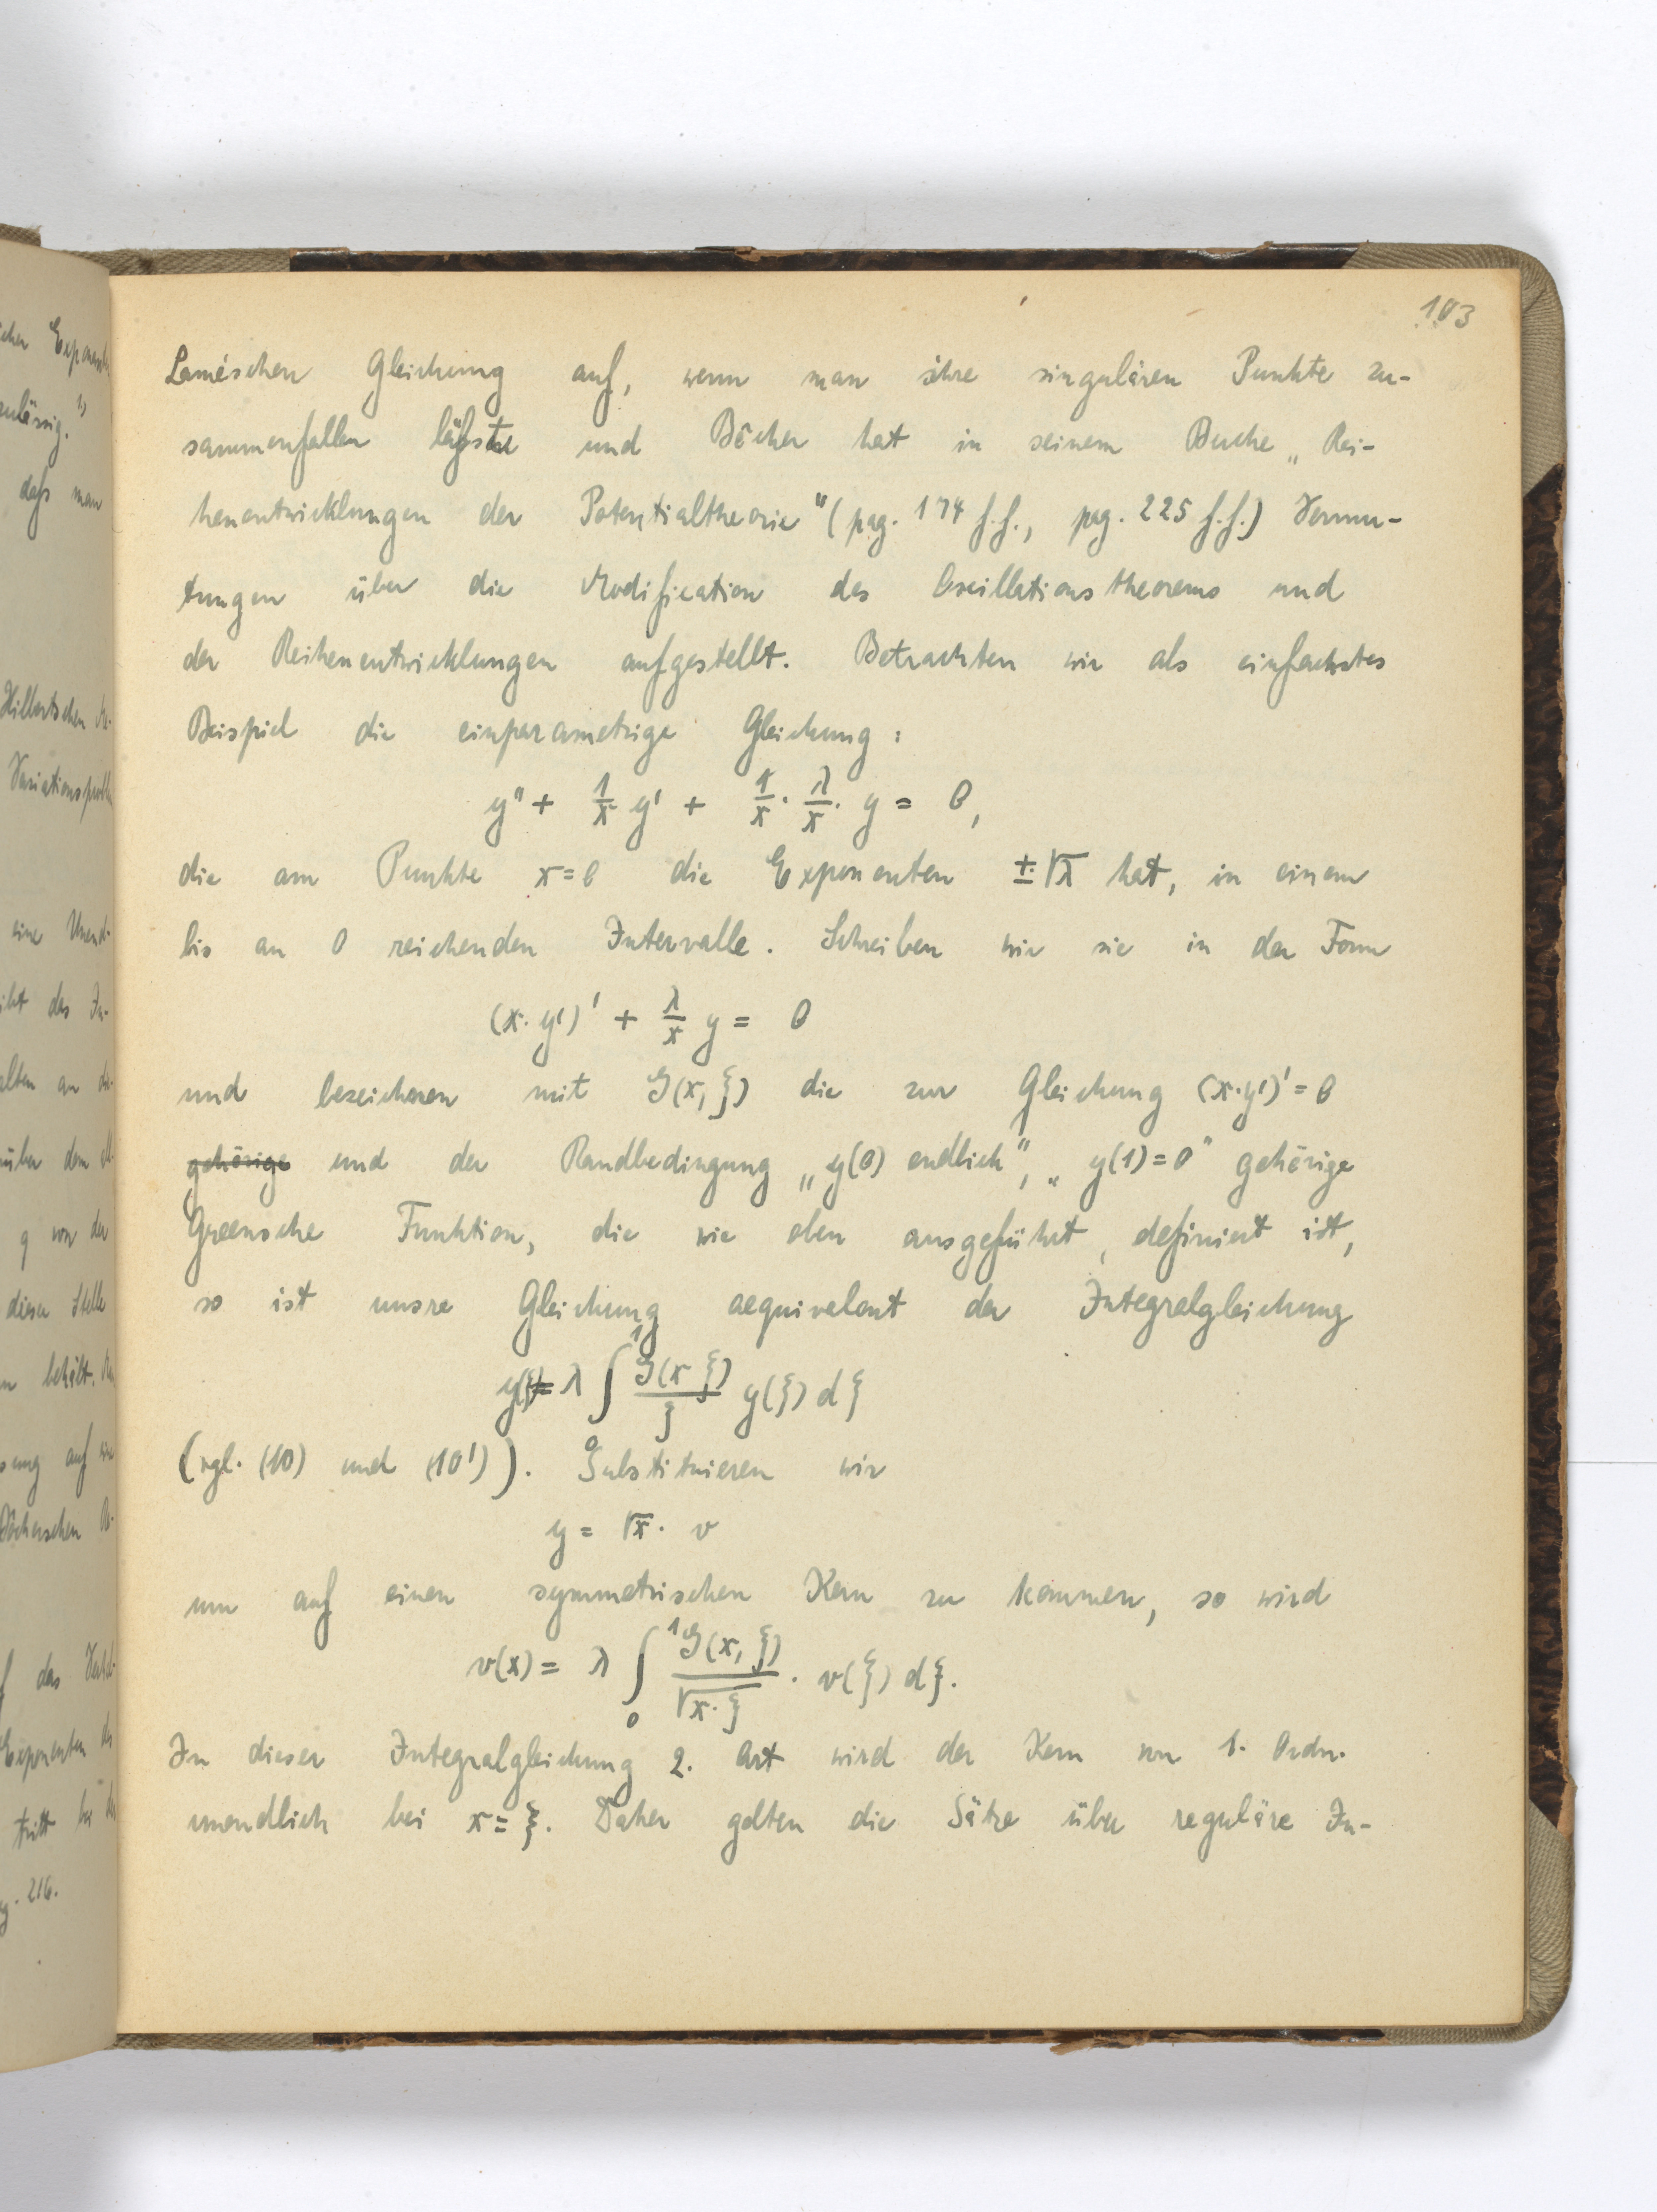 103
Laméschen Gleichung auf, wenn man ihre singulären Punkte zu-
sammenfallen läfst und Bôcher hat in seinem Buche „Rei-
henentwicklungen der Potentialtheorie" (pag. 174 f.f., pag. 225 f.f.) Vermu-
tungen über die Modification des Oscillationstheorems und
der Reihenentwicklungen aufgestellt. Betrachten wir als einfachstes
Beispiel die einparametrige Gleichung:
y" + 1/x y' + 1/x · λ/x · y = 0,
die am Punkte x=0 die Exponenten ±√λ hat, in einem
bis an 0 reichenden Intervalle. Schreiben wir sie in der Form
(x·y')' + λ/x y = 0
und bezeichnen mit G(x, ξ) die zur Gleichung (x·y')' = 0
gehörige und der Randbedingung „y(0) endlich", „y(1)=0" gehörige
Greensche Funktion, die wie oben ausgeführt, definiert ist,
so ist unsre Gleichung aequivalent der Integralgleichung
= λ ∫₀¹ G(x ξ)/ξ y(ξ) dξ
(vgl. (10) und (10')). Substituieren wir
y = √x · v
um auf einen symmetrischen Kern zu kommen, so wird
v(x) = λ ∫₀¹ G(x, ξ)/√x·ξ · v(ξ) dξ.
In dieser Integralgleichung 2. Art wird der Kern von 1. Ordn.
unendlich bei x = ξ. Daher gelten die Sätze über reguläre In-